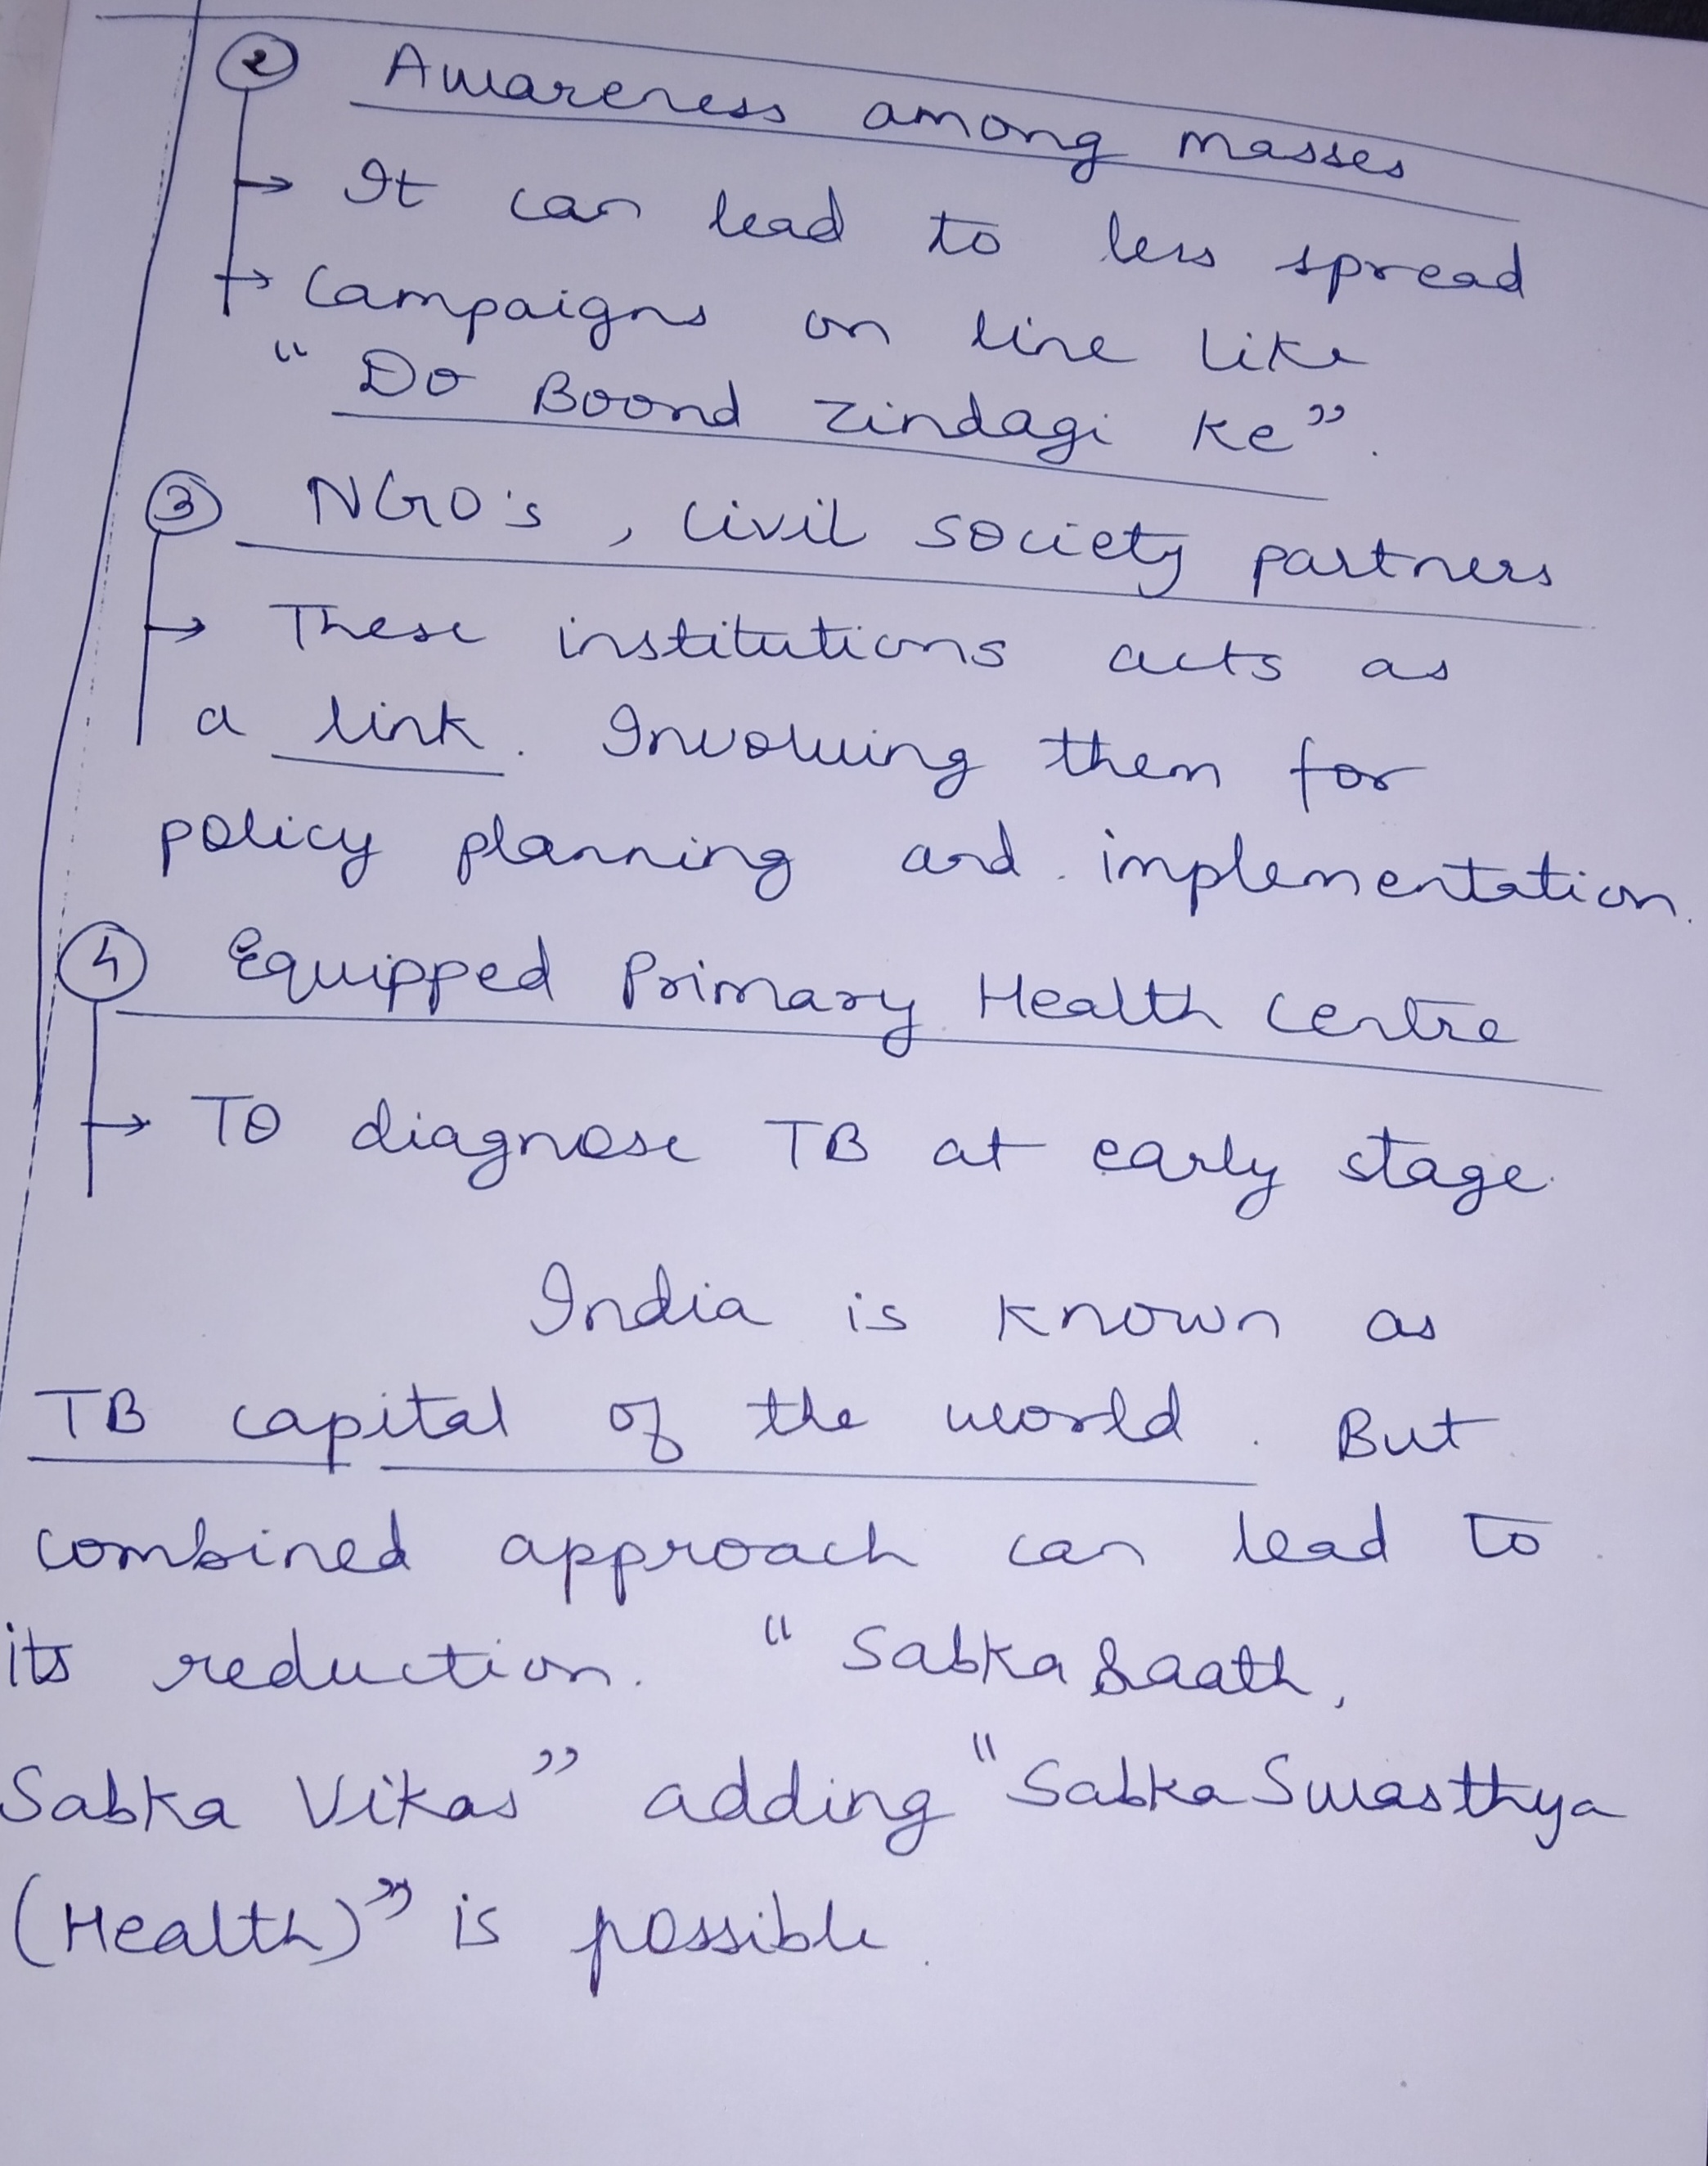 ② Awareness among masses
→ It can lead to less spread
→ Campaigns on line like
"Do Boond Zindagi Ke".
③ NGO's, Civil society partners
→ These institutions acts as
a link. Involving them for
policy planning and implementation.
④ Equipped Primary Health Centre
→ To diagnose TB at early stage.
India is known as
TB capital of the world. But
combined approach can lead to
its reduction. "Sabka Saath,
Sabka Vikas" adding "Sabka Swasthya
(Health)" is possible.